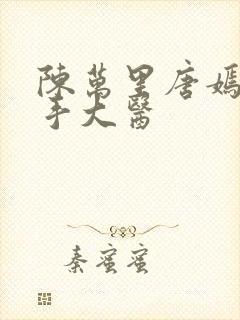 陳萬里唐嫣
手大醫
秦蜜蜜